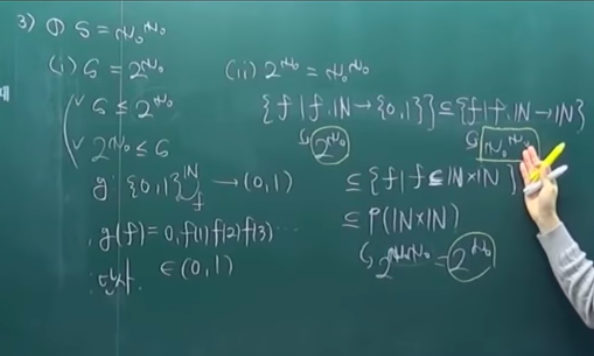 3) ① c = ℵ₀^ℵ₀
(i) c = 2^ℵ₀
c ≤ 2^ℵ₀
2^ℵ₀ ≤ c
g: {0,1}^ℕ → (0,1)
f
g(f) = 0.f(1)f(2)f(3)⋯
: 단사. ∈ (0,1)
(ii) 2^ℵ₀ = ℵ₀^ℵ₀
{f | f: ℕ → {0,1}} ⊆ {f | f: ℕ → ℕ}
2^ℵ₀ ℵ₀^ℵ₀
⊆ {f | f ⊆ ℕ×ℕ}
⊆ P(ℕ×ℕ)
2^ℵ₀ℵ₀ = 2^ℵ₀